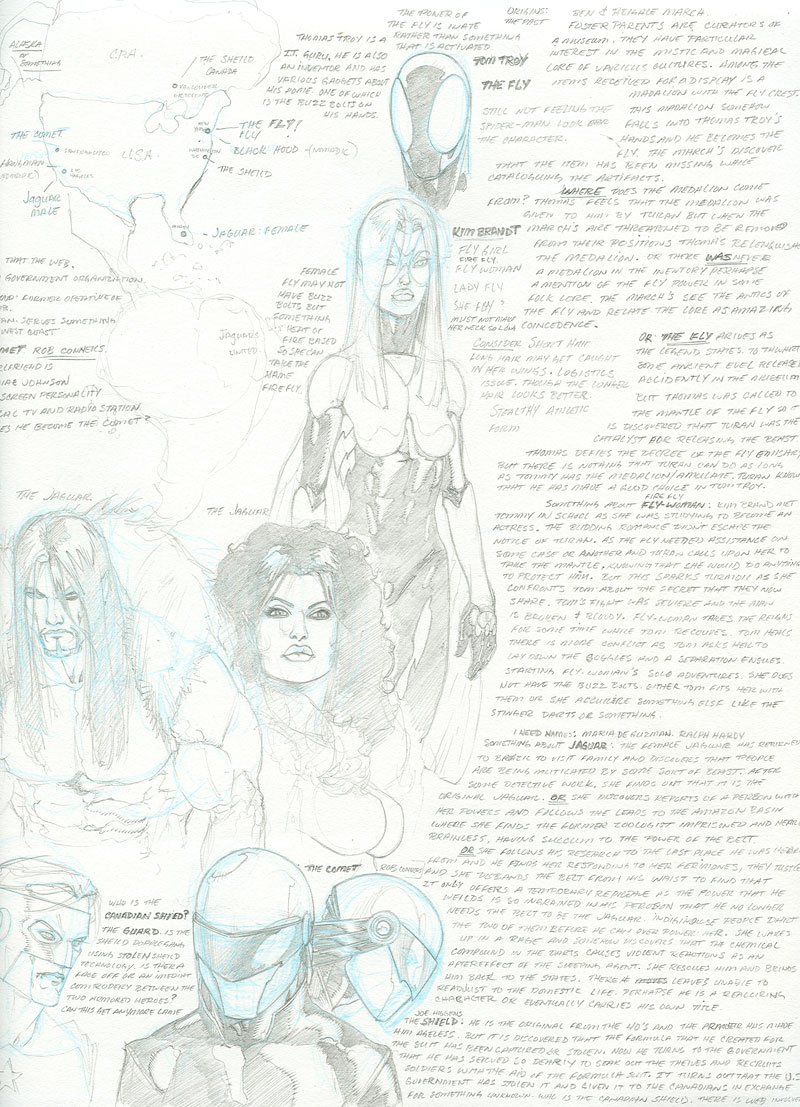 ALASKA
OR SOMETHING
CDA.
THE SHEILD
CANADA
THE COMET
THE FLY!
FLY
U.S.A.
BLACK HOOD (NOMADIC)
THE SHEILD
JAGUAR
MALE
JAGUAR: FEMALE
THE POWER OF
THE FLY IS INATE
RATHER THAN SOMETHING
THAT IS ACTIVATED
THOMAS TROY IS A
I.T. GURU. HE IS ALSO
AN INVENTOR AND HAS
VARIOUS GADGETS ABOUT
HIS HOME. ONE OF WHICH
IS THE BUZZ BOLTS ON
HIS HANDS.
TOM TROY
THE FLY
STILL NOT FEELING THE
SPIDER-MAN LOOK FOR
THE CHARACTER.
ORIGINS:
THE PAST
BEN & ABIGALE MARCH.
FOSTER PARENTS ARE CURATORS OF
A MUSEUM. THEY HAVE PARTICULAR
INTEREST IN THE MISTIC AND MAGICAL
LORE OF VARIOUS CULTURES. AMONG THE
ITEMS RECEIVED FOR A DISPLAY IS A
MADALION WITH THE FLY CREST.
THIS MADALION SOMEHOW
FALLS INTO THOMAS TROY'S
HANDS AND HE BECOMES THE
FLY. THE MARCH'S DISCOVER
THAT THE ITEM HAS BEEN MISSING WHILE
CATALOGUING THE ARTIFACTS.
WHERE DOES THE MEDALION COME
FROM? THOMAS FEELS THAT THE MEDALION WAS
GIVEN TO HIM BY TURAN BUT WHEN THE
MARCH'S ARE THREATENED TO BE REMOVED
FROM THEIR POSITIONS THOMAS RELENQUISHES
THE MEDALION. OR THERE WAS NEVER
A MEDALION IN THE INVENTORY PERHAPSE
A MENTION OF THE FLY POWER IN SOME
FOLK LORE. THE MARCH'S SEE THE ANTICS OF
THE FLY AND RELATE THE LORE AS AMAZING
COINCEDENCE.
OR THE FLY ARRIVES AS
THE LEGEND STATES TO THWART
SOME ANCIENT EVEL RELEASED
ACCIDENTLY IN THE MUSEUM
BUT THOMAS WAS CALLED TO
THE MANTLE OF THE FLY SO IT
IS DISCOVERED THAT TURAN WAS THE
CATALYST FOR RELEASING THE BEAST.
THOMAS DEFIES THE DECREE OF THE FLY EMISSARY
BUT THERE IS NOTHING THAT TURAN CAN DO AS LONG
AS TOMMY HAS THE MEDALION/AMULATE. TURAN KNOWS
THAT HE HAS MADE A GOOD CHOICE IN TOM TROY.
KIM BRANDT
FLY GIRL
FIRE FLY
FLY WOMAN
LADY FLY
SHE-FLY?
MUST NOT MAKE
HER NECK SO LONG
CONSIDER SHORT HAIR
LONG HAIR MAY GET CAUGHT
IN HER WINGS. LOGISTICS
ISSUE. THOUGH THE LONGER
HAIR LOOKS BETTER.
STEALTHY ATHLETIC
FORM
FEMALE
FLY MAY NOT
HAVE BUZZ
BOLTS BUT
SOMETHING
IS HEAT OR
FIRE BASED
SO SHE CAN
TAKE THE
NAME
FIREFLY.
JAGUARS
UNITED
THAT THE WEB.
GOVERNMENT ORGANIZATION.
FORMER OPERATIVE OF
SERVES SOMETHING
WEST COAST
ROB CONNERS.
FRIEND IS
JOHNSON
SCREEN PERSONALITY
TV AND RADIO STATION
HE BECOME THE COMET?
FIRE FLY
SOMETHING ABOUT FLY-WOMAN: KIM BRAND MET
TOMMY IN SCHOOL AS SHE WAS STUDYING TO BECOME AN
ACTRESS. THE BUDDING ROMANCE DIDN'T ESCAPE THE
NOTICE OF TURAN. AS THE FLY NEEDED ASSISTANCE ON
SOME CASE OR ANOTHER AND TURAN CALLS UPON HER TO
TAKE THE MANTLE, KNOWING THAT SHE WOULD DO ANYTHING
TO PROTECT HIM. BUT THIS SPARKS TURMOIL AS SHE
CONFRONTS TOM ABOUT THE SECRET THAT THEY NOW
SHARE. TOM'S FIGHT WAS SEVERE AND THE MAN
IS BROKEN & BLOODY. FLY-WOMAN TAKES THE REIGNS
FOR SOME TIME WHILE TOM RECOVERS. TOM HEALS
THERE IS MORE CONFLICT AS TOM ASKS HER TO
LAY DOWN THE GOGGLES AND A SEPARATION ENSUES.
STARTING FLY-WOMAN'S SOLO ADVENTURES. SHE DOES
NOT HAVE THE BUZZ BOLTS. EITHER TOM FITS HER WITH
THEM OR SHE ACQUIRES SOMETHING ELSE LIKE THE
STINGER DARTS OR SOMETHING.
I NEED NAMES: MARIA DE GUZMAN. RALPH HARDY
SOMETHING ABOUT JAGUAR: THE FEMALE JAGUAR HAS RETURNED
TO BRAZIL TO VISIT FAMILY AND DISCOVERS THAT PEOPLE
ARE BEING MUTILATED BY SOME SORT OF BEAST. AFTER
SOME DETECTIVE WORK. SHE FINDS OUT THAT IT IS THE
ORIGINAL JAGUAR. OR SHE DISCOVERS REPORTS OF A PERSON WITH
HER POWERS AND FOLLOWS THE LEADS TO THE AMAZON BASIN
WHERE SHE FINDS THE FORMER ZOOLOGIST IMPRISONED AND NEARLY
BRAINLESS, HAVING SUCCUM TO THE POWER OF THE BELT.
OR SHE FOLLOWS AS RESEARCH TO THE LAST PLACE HE WAS HEARD
FROM AND HE FINDS HER RESPONDING TO HER PERIMONES, THEY TUSSLE
AND SHE DISBANDS THE BELT FROM HIS WAIST TO FIND THAT
IT ONLY OFFERS A TEMPORARY REPREAVE AS THE POWER THAT HE
WEILDS IS SO INGRAINED IN HIS PERSON THAT HE NO LONGER
NEEDS THE BELT TO BE THE JAGUAR. INDIGINOUSE PEOPLE DART
THE TWO OF THEM BEFORE HE CAN OVER POWER HER. SHE WAKES
UP IN A RAGE AND SOMEHOW DISCOVERS THAT THE CHEMICAL
COMPOUND IN THE DARTS CAUSES VIOLENT REACTIONS AS AN
AFTEREFFECT OF THE SLEEPING AGENT. SHE RESCUES HIM AND BRINGS
HIM BACK TO THE STATES. THERE HE LEAVES UNABLE TO
READJUST TO THE DOMESTIC LIFE. PERHAPSE HE IS A REACURING
CHARACTER OR EVENTUALLY CARRIES HIS OWN TITLE.
THE JAGUAR
THE JAGUAR
THE COMET
ROB CONNERS
WHO IS THE
CANADIAN SHEILD?
THE GUARD. IS THE
SHEILD DOPPLEGANG
USING STOLEN SHEILD
TECHNOLOGY. IS THER A
FACE OFF OR AN IMEDIAT
COMRADERY BETWEEN THE
TWO ARMORED HEROES?
CAN THIS GET ANYMORE LAME
JOE HIGGINS
THE SHIELD: HE IS THE ORIGINAL FROM THE 40'S AND THE POWER HAS MADE
HIM AGELESS. BUT IT IS DISCOVERED THAT THE FORMULA THAT HE CREATED FOR
THE SUIT HAS BEEN CAPTURED OR STOLEN. NOW HE TURNS TO THE GOVERNMENT
THAT HE HAS SERVED SO DEARLY TO SEAK OUT THE THEIVES AND RECRUITS
SOLDIERS WITH THE AID OF THE FORMULA SUIT. IT TURNS OUT THAT THE U.S.
GOVERNMENT HAS STOLEN IT AND GIVEN IT TO THE CANADIANS IN EXCHANGE
FOR SOMETHING UNKNOWN. WHO IS THE CANADIAN SHIELD. THERE IS WEB INVOLVE